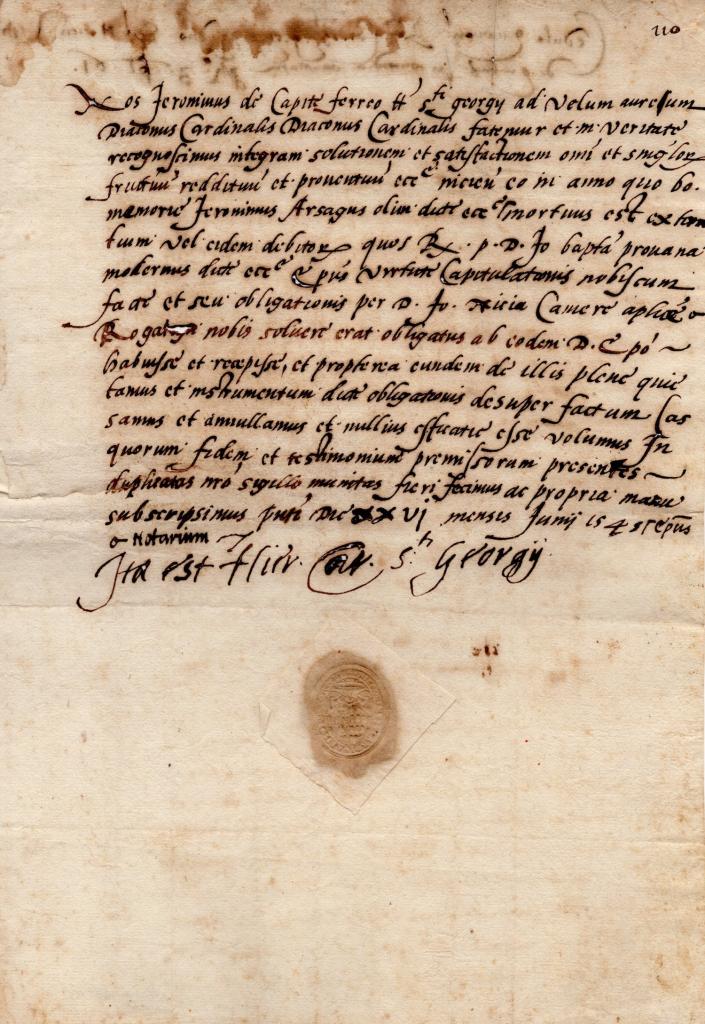 110
Nos Jeronimus de Capite ferreo tt sti georgij ad Velum aureum
Diaconus Cardinalis Diaconus Cardinalis fatemur et in Veritate
recognoscimus integram solutionem et satisfactionem omi et singlor
fructuu reddituu et prouentuu ecce nicien eo in anno quo bo.
memorie Jeronimus Arsagus olim dicte ecce mortuus est
vel eidem debitor quos R. p. D. Jo bapta prouana
modernus dicte ecce Virtute Capitulationis nobiscum
facte et seu obligationis per D. Jo. Camere aplice
nobis soluere erat obligatus ab eodem D.
habuisse et recepisse, et propterea eundem de illis plene quie
tamus et instrumentum dicte obligationis desuper factum Cas
samus et annullamus et nullius efficatie esse volumus In
quorum fidem et testimonium premissorum presentes
duplicatas nro sigillo munitas fieri fecimus ac propria manu
subscripsimus Die xxvj mensis Junij 154
Notarium
Ita est Hier. Car. Sti Georgij